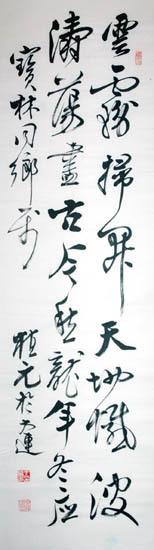 雲霧掃開天地憾波
濤蕩盡古今愁龍年冬應
寶林同鄉
植元於大連